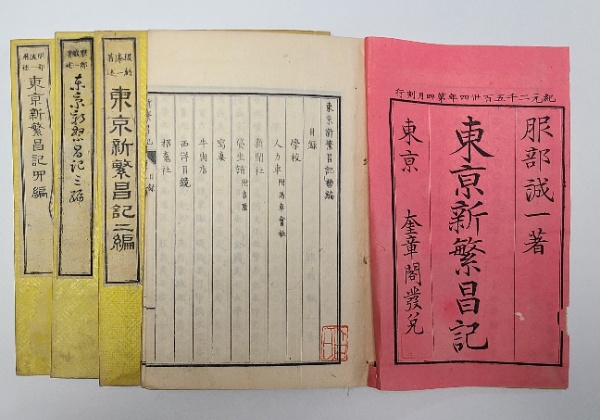 紀元二千五百卅四年第四月刻行
服部誠一著
東京新繁昌記
東京 奎章閣發兌
東京新繁昌記初編
目錄
學校
人力車 附馬車會社
新聞社
寫真
牛肉店
西洋目鏡
招魂社
服部誠一著述
東京新繁昌記二編
東京新繁昌記三編
東京新繁昌記四編